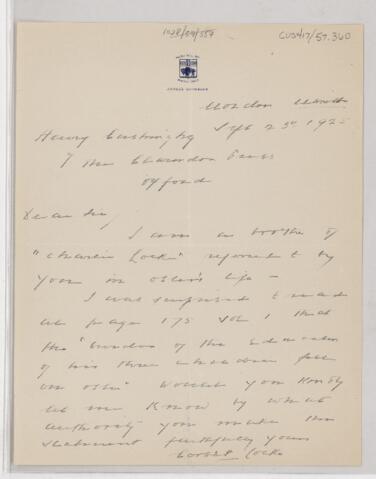 CUS417/57.360
Morden Manitoba
Sept 23rd 1925
The Clarendon Press
Oxford
Dear Sir,
I am a brother of
"Charlie Locke" referred to by
you in Osler's Life –
I was surprised to read
at page 175 Vol 1 that
the "burden of the education
of his three children fell
on Osler" Would you kindly
let me know by what
authority you make this
statement
faithfully yours
Locke